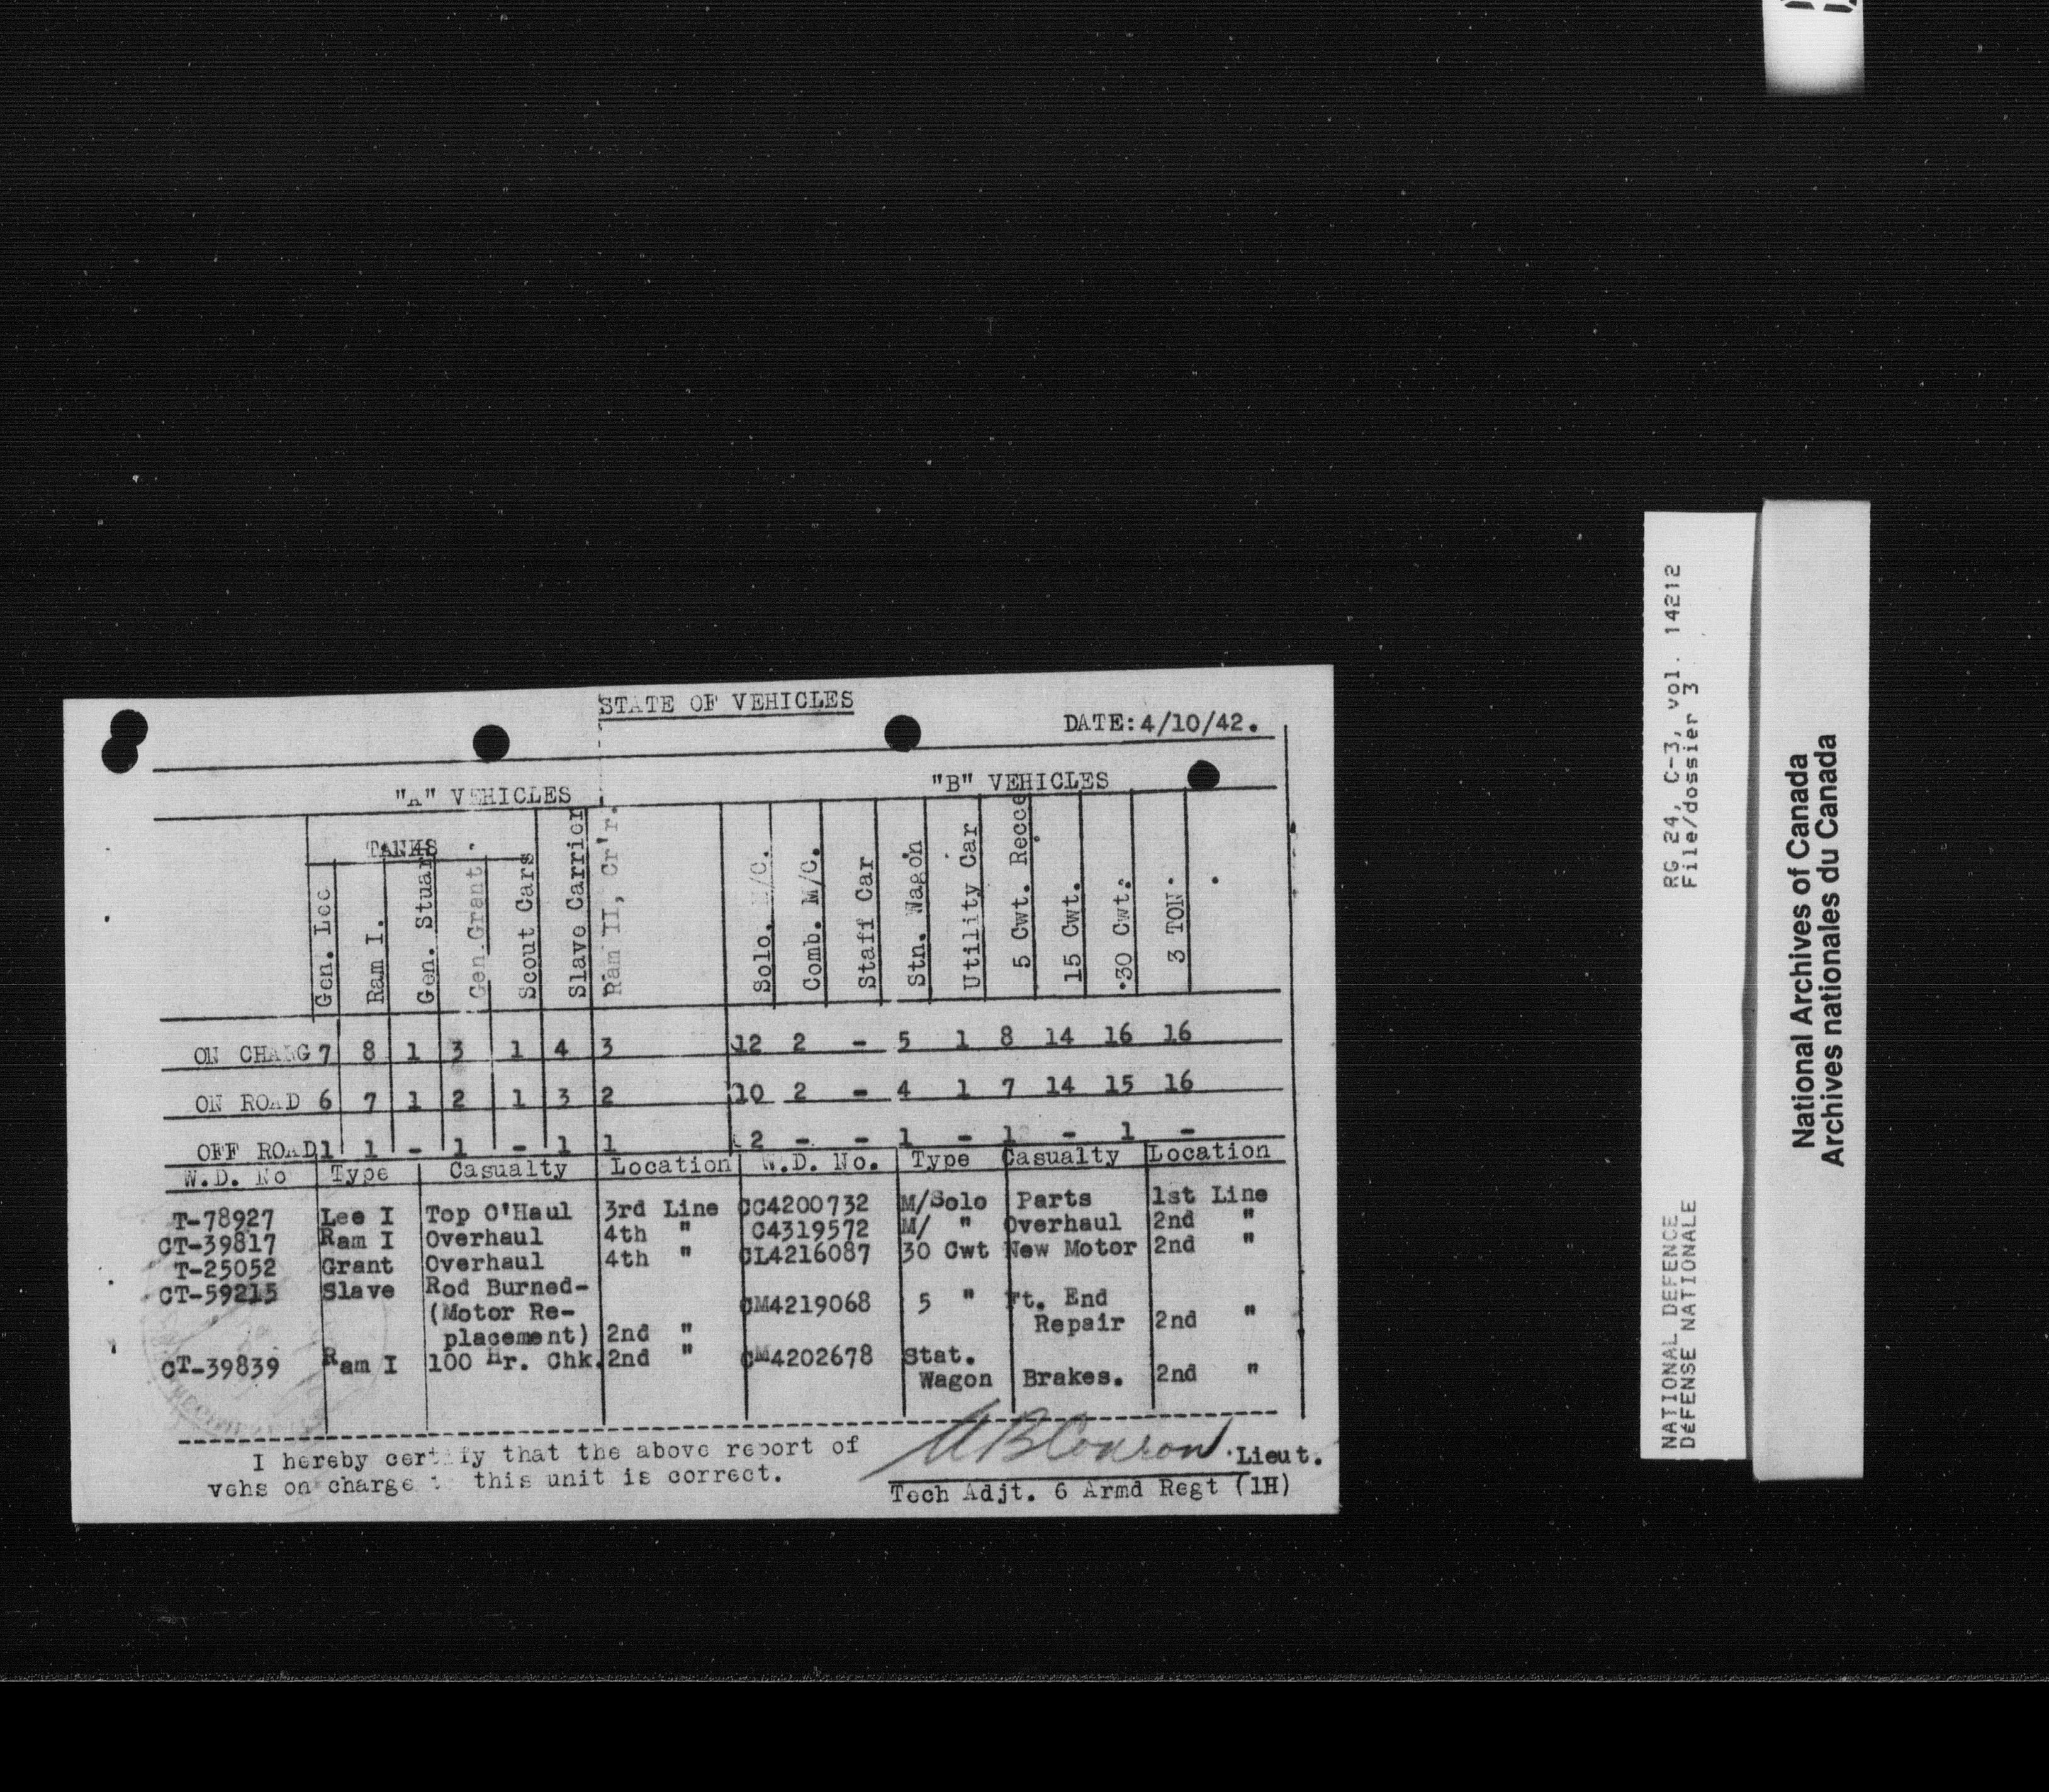 STATE OF VEHICLES
DATE:4/10/42.
"A" VEHICLES
"B" VEHICLES
TANKS
Gen. Lee
Ram I.
Gen. Stuar
Gen.Grant
Scout Cars
Slave Carrier
Ram II, Cr'r.
Solo. M/C.
Comb. M/C.
Staff Car
Stn. Wagon
Utility Car
5 Cwt. Recce
15 Cwt.
30 Cwt.
3 TON.
ON CHARG 7 8 1 3 1 4 3 12 2 - 5 1 8 14 16 16
ON ROAD 6 7 1 2 1 3 2 10 2 - 4 1 7 14 15 16
OFF ROAD 1 1 - 1 - 1 1 2 - - 1 - 1 - 1 -
W.D. No Type Casualty Location W.D. No. Type Casualty Location
T-78927 Lee I Top O'Haul 3rd Line CC4200732 M/Solo Parts 1st Line
CT-39817 Ram I Overhaul 4th " C4319572 M/ " Overhaul 2nd "
T-25052 Grant Overhaul 4th " CL4216087 30 Cwt New Motor 2nd "
CT-59215 Slave Rod Burned-
(Motor Re- CM4219068 5 " Ft. End
placement) 2nd " Repair 2nd "
CT-39839 Ram I 100 Hr. Chk. 2nd " CM4202678 Stat.
Wagon Brakes. 2nd "
I hereby certify that the above report of
vehs on charge this unit is correct.
Lieut.
Tech Adjt. 6 Armd Regt (1H)
RG 24, C-3, vol. 14212
File/dossier 3
NATIONAL DEFENCE
DéFENSE NATIONALE
National Archives of Canada
Archives nationales du Canada